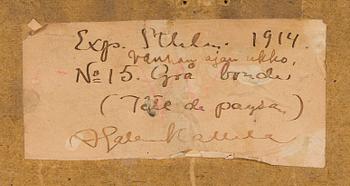 Exp. Sthlm. 1914.
vanhan ajan ukko,
No 15. Grå bonde
(Tête de paysan)
A Gallen Kallela